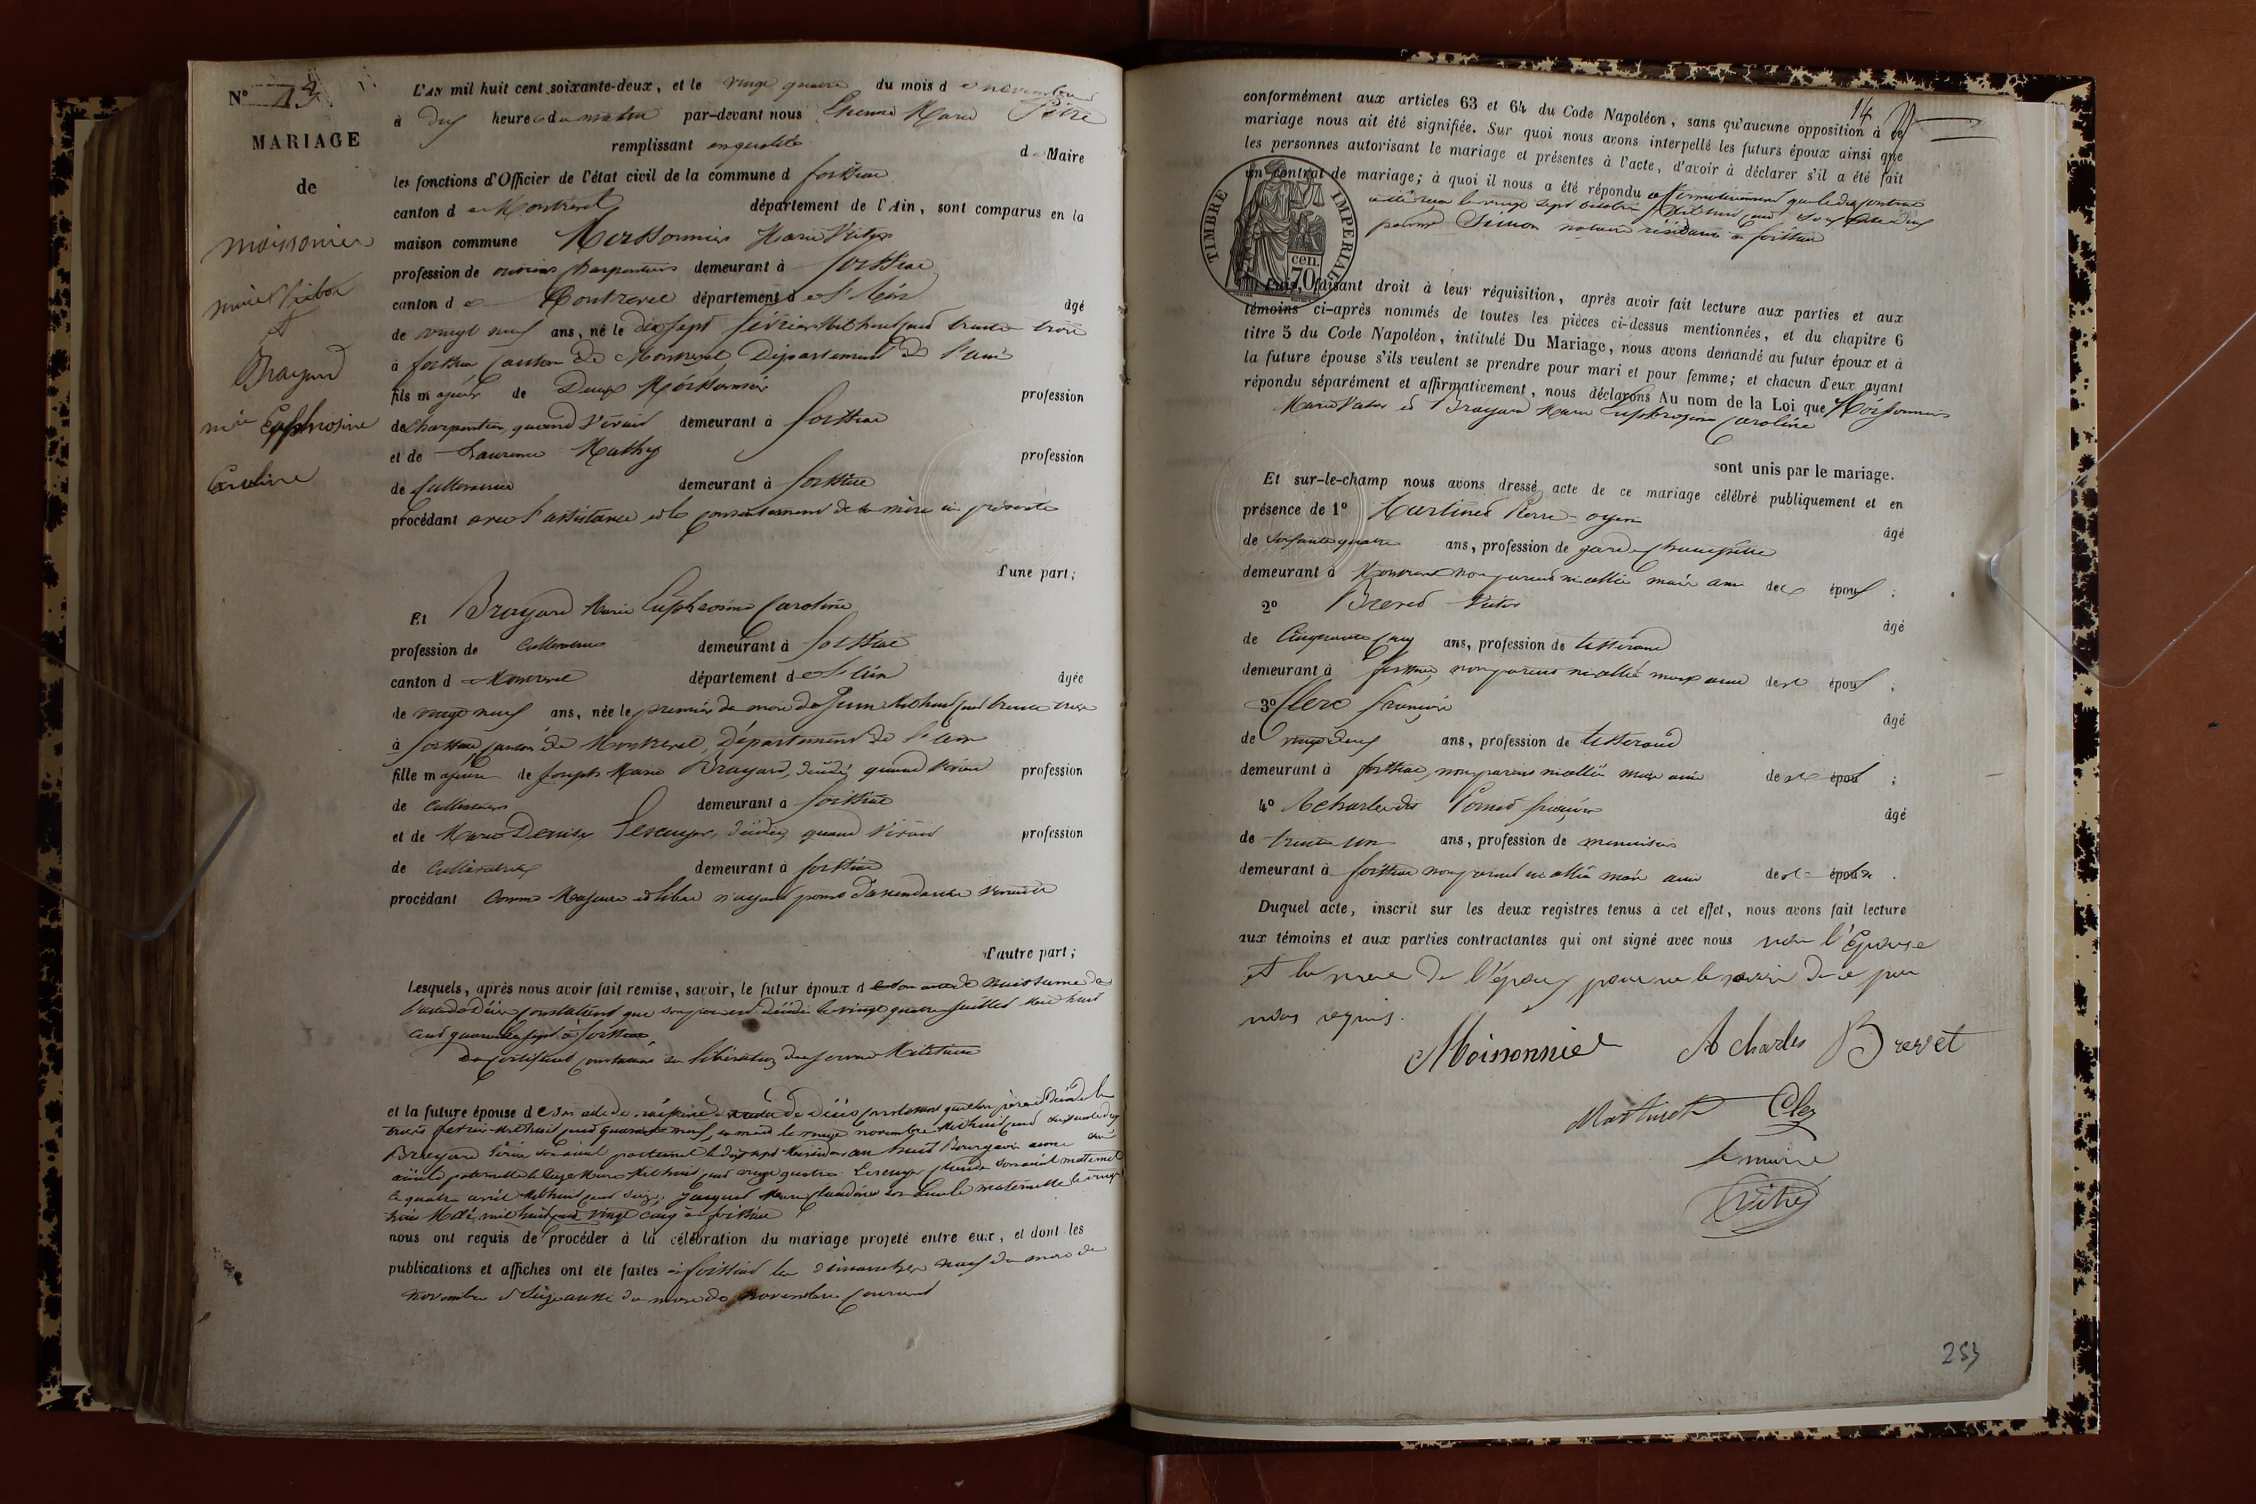 N° 13
MARIAGE
de
moissonnier
marie Victor
et
Brayard
mie Euphrosine
Caroline
L'AN mil huit cent soixante-deux, et le vingt quatre du mois de novembre
à dix heures du matin par-devant nous Etienne Marie Pitre
remplissant en qualité de Maire
les fonctions d'Officier de l'état civil de la commune d foissiat
canton de Montrevel département de l'Ain, sont comparus en la
maison commune Moissonnier Marie Victor
profession de ouvrier charpentier demeurant à foissiat
canton de Montrevel département de l'Ain âgé
de vingt neuf ans, né le dix sept février mil huit cent trente trois
à foissiat canton de Montrevel Département de l'ain
fils majeur de Moissonnier profession
de charpentier quand vivait demeurant à foissiat
et de Laurence Mathy profession
de cultivatrice demeurant à foissiat
procédant avec l'assistance et le consentement de sa mère ici présente
d'une part;
Et Brayard Marie Euphrosine Caroline
profession de cultivatrice demeurant à foissiat
canton de Montrevel département de l'ain âgée
de vingt neuf ans, née le premier du mois de Juin mil huit cent trente trois
à foissiat canton de Montrevel, Département de l'ain
fille majeure de Joseph Marie Brayard, décédé quand vivait profession
de cultivateur demeurant à foissiat
et de Marie Denise décédée quand vivait profession
de cultivatrice demeurant à foissiat
procédant comme Majeure et libre n'ayant point d'ascendants
d'autre part;
Lesquels, après nous avoir fait remise, savoir, le futur époux de son acte de naissance de
l'acte de décès constatant que son père est décédé le vingt quatre juillet mil huit
cent quarante sept à foissiat
Du certificat constatant sa libération du service Militaire
et la future épouse de son acte de naissance de décès constatant que son père est décédé le
février mil huit cent quarante neuf, sa mère le vingt novembre mil huit cent
Brayard son aieul paternel le dix sept
aieule paternelle le mil huit cent vingt quatre son aieul maternel
le quatre avril mil huit cent son aieule maternelle le vingt
trois Mai mil huit cent vingt cinq à foissiat
nous ont requis de procéder à la célébration du mariage projeté entre eux, et dont les
publications et affiches ont été faites à foissiat les dimanches neuf du mois de
novembre et seize aussi du mois de novembre courant
14
conformément aux articles 63 et 64 du Code Napoléon, sans qu'aucune opposition à ce
mariage nous ait été signifiée. Sur quoi nous avons interpellé les futurs époux ainsi que
les personnes autorisant le mariage et présentes à l'acte, d'avoir à déclarer s'il a été fait
un contrat de mariage; à quoi il nous a été répondu affirmativement que le dit contrat
a été reçu le vingt sept octobre mil huit cent soixante deux
par Me Simon notaire résidant à foissiat
TIMBRE IMPERIAL
70 cen.
faisant droit à leur réquisition, après avoir fait lecture aux parties et aux
témoins ci-après nommés de toutes les pièces ci-dessus mentionnées, et du chapitre 6
titre 5 du Code Napoléon, intitulé Du Mariage, nous avons demandé au futur époux et à
la future épouse s'ils veulent se prendre pour mari et pour femme; et chacun d'eux ayant
répondu séparément et affirmativement, nous déclarons Au nom de la Loi que Moissonnier
Marie Victor et Brayard Marie Euphrosine Caroline
sont unis par le mariage.
Et sur-le-champ nous avons dressé acte de ce mariage célébré publiquement et en
présence de 1° Martinet Pierre âgé
de soixante quatre ans, profession de garde champêtre
demeurant à Montrevel non parent ni allié mais ami de l' époux;
2° Brevet Victor âgé
de Cinquante cinq ans, profession de tisserand
demeurant à foissiat, non parent ni allié mais ami de l' époux;
3° Clerc françois âgé
de ans, profession de tisserand
demeurant à foissiat, non parent ni allié mais ami de l' époux;
4° Acharles dit françois âgé
de trente un ans, profession de menuisier
demeurant à foissiat non parent ni allié mais ami de l' époux.
Duquel acte, inscrit sur les deux registres tenus à cet effet, nous avons fait lecture
aux témoins et aux parties contractantes qui ont signé avec nous non l'Epouse
et la mère de l'époux pour ne le savoir de ce par
nous requis.
Moissonnier Acharles Brevet
Martinet Clerc
le maire
Pitre
253